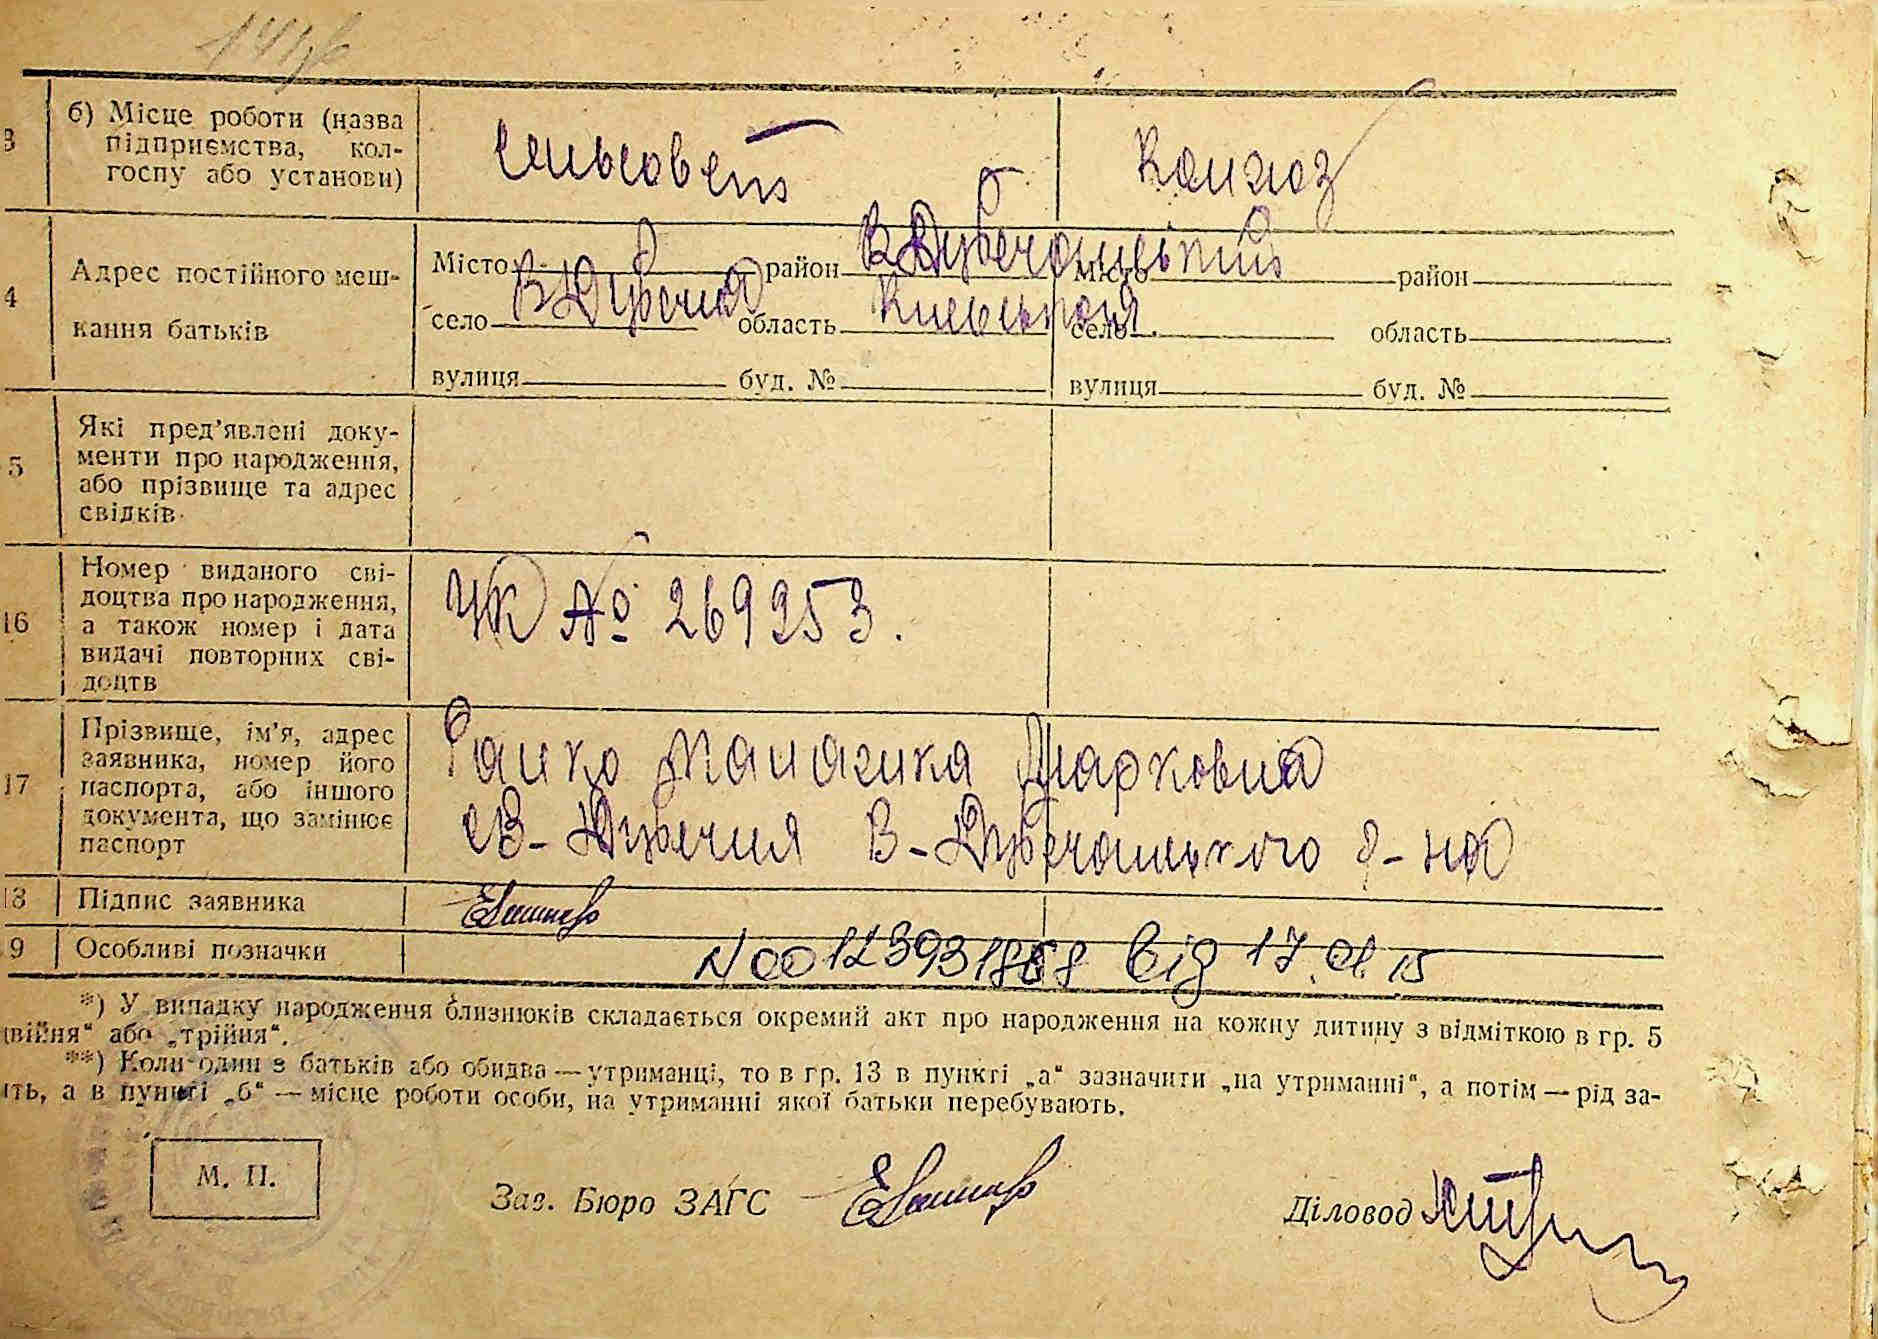 б) Місце роботи (назва
підприємства, кол-
госпу або установи)
сильсовет
Колхоз
4
Адрес постійного меш-
кання батьків
Місто район В Дубечанський Місто район
село В Дубечня область Київськоя село область
вулиця буд. № вулиця буд. №
5
Які пред'явлені доку-
менти про народження,
або прізвище та адрес
свідків
16
Номер виданого сві-
доцтва про народження,
а також номер і дата
видачі повторних сві-
доцтв
УК № 269953.
17
Прізвище, ім'я, адрес
заявника, номер його
паспорта, або іншого
документа, що замінює
паспорт
Марковна
с В-Дубечня В-Дубечанського р-на
18 Підпис заявника
9 Особливі позначки
N 00123931868 від 17.01.15
*) У випадку народження близнюків складається окремий акт про народження на кожну дитину з відміткою в гр. 5
двійня“ або „трійня“.
**) Коли один з батьків або обидва — утриманці, то в гр. 13 в пункті „а“ зазначити „на утриманні“, а потім — рід за-
ть, а в пункті „б“ — місце роботи особи, на утриманні якої батьки перебувають.
М. П.
Зав. Бюро ЗАГС
Діловод